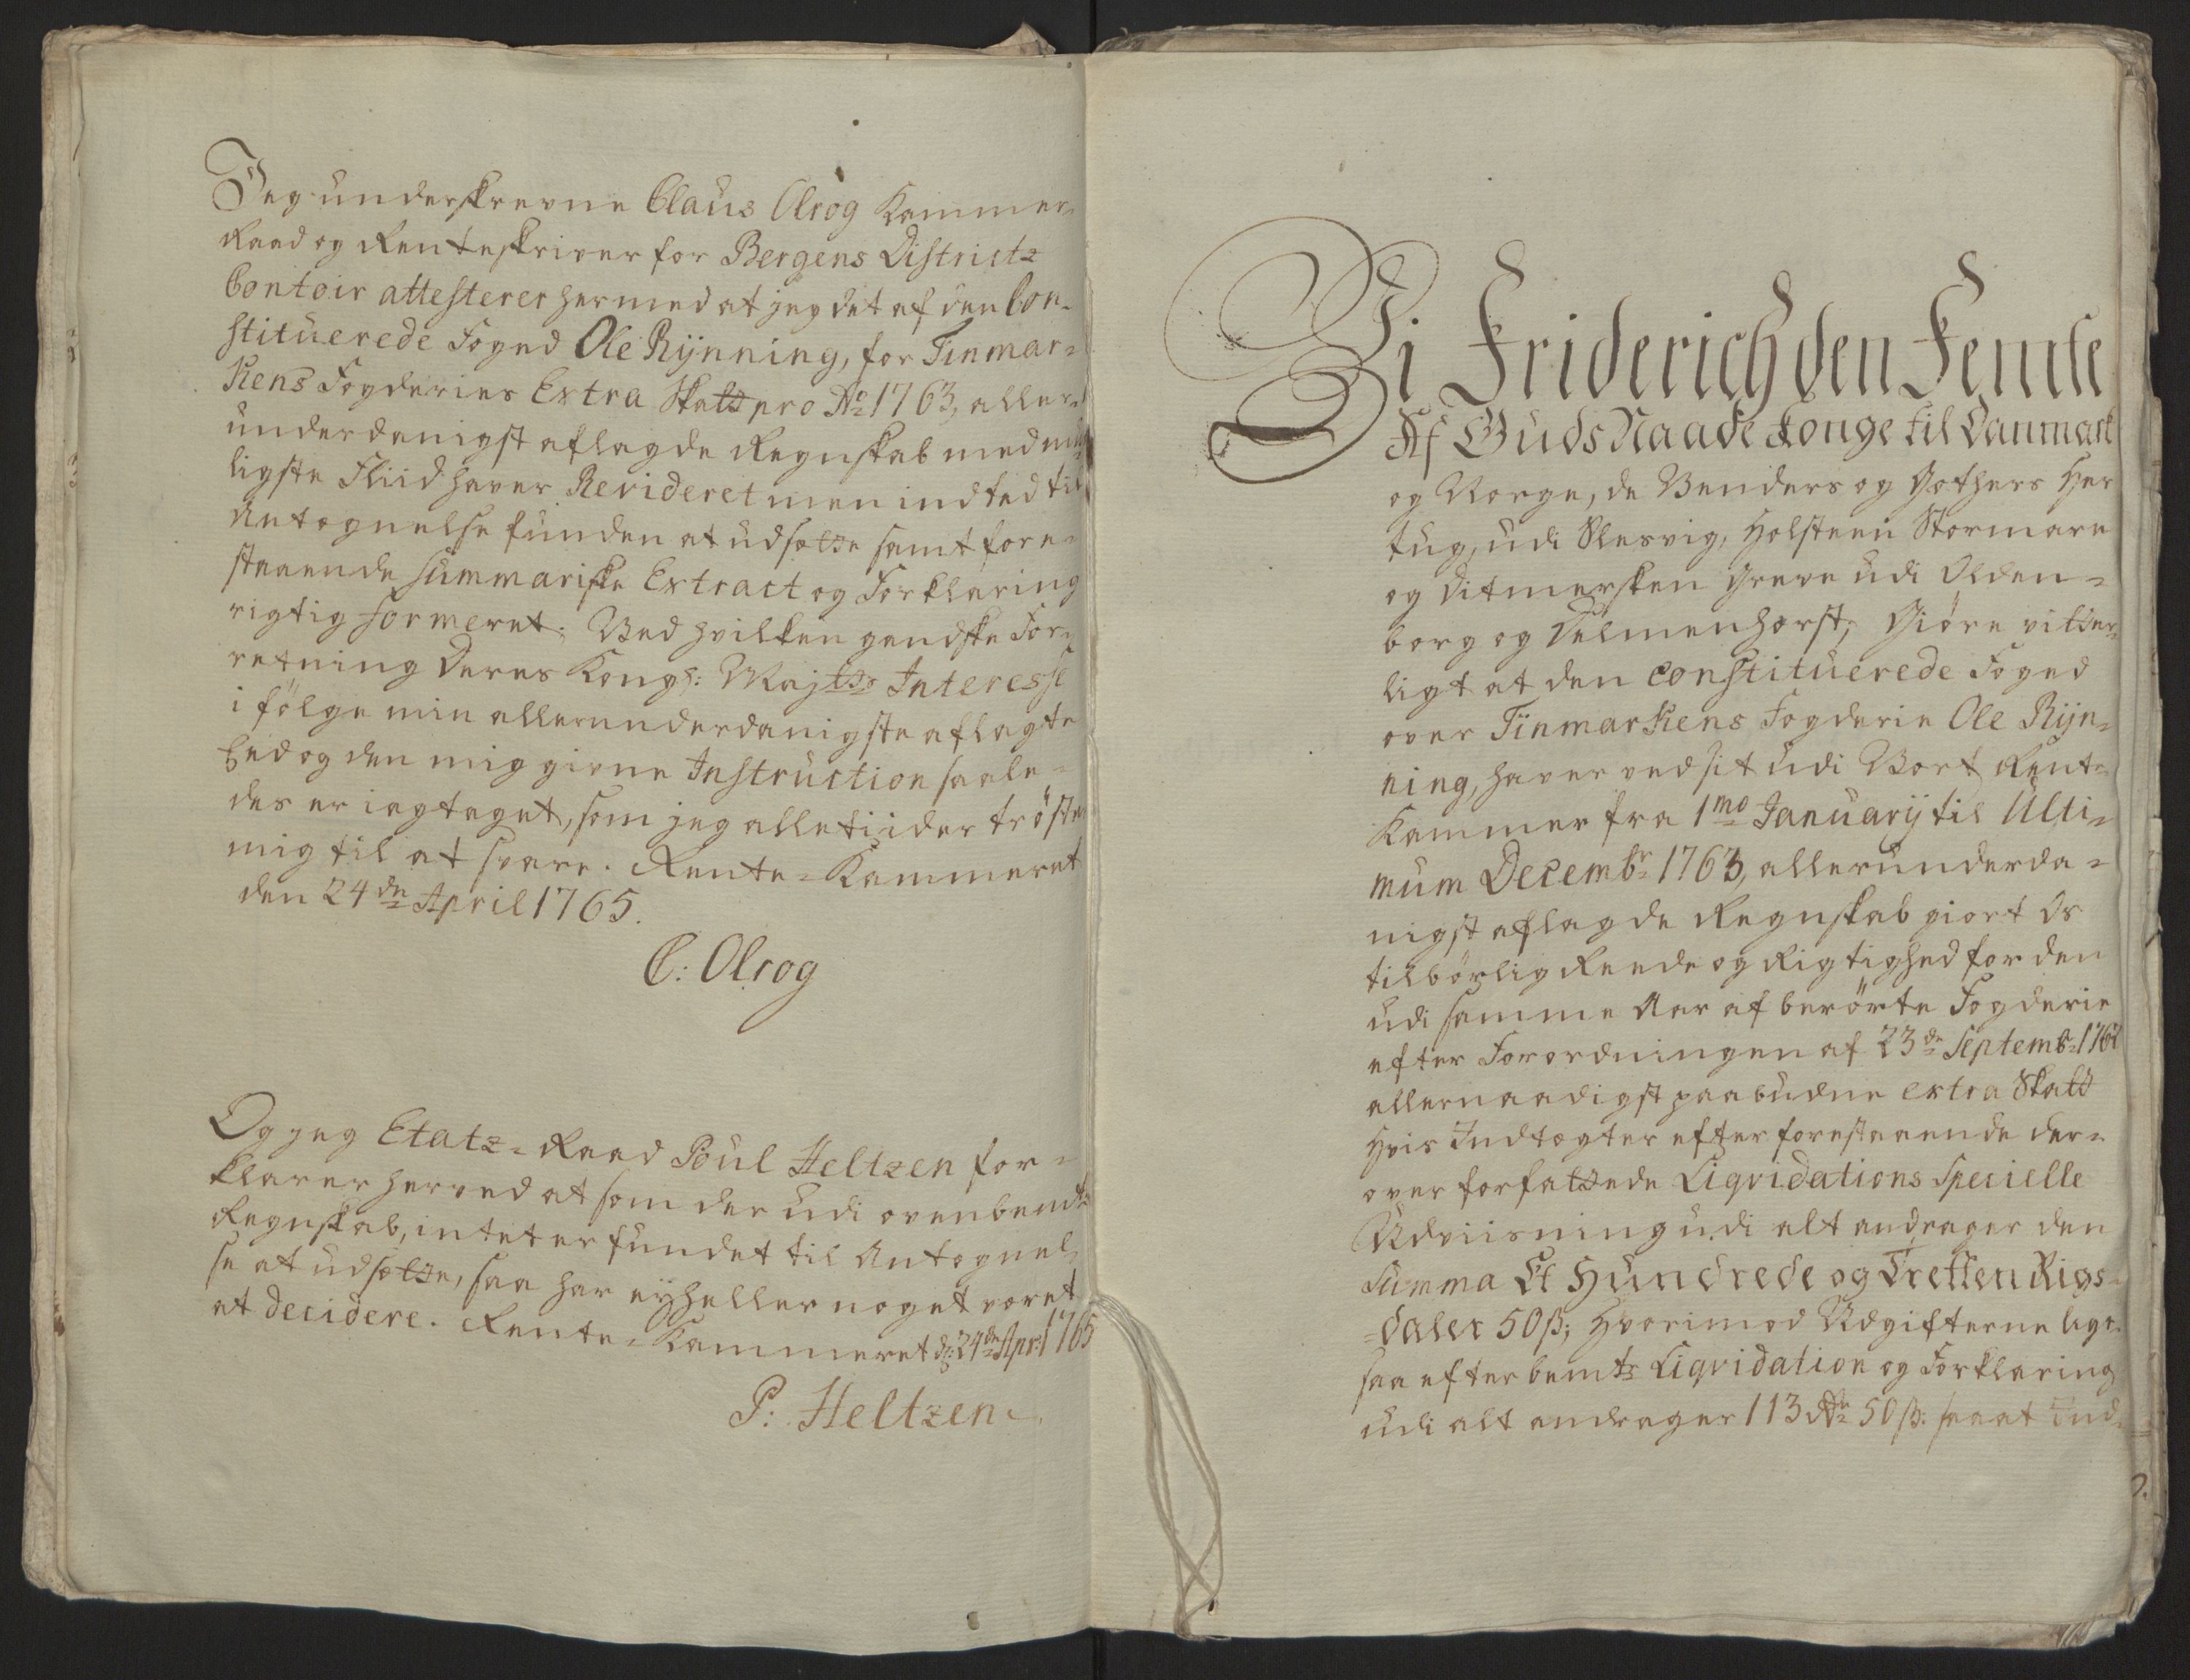 Jeg underskrevne Claus Olrog Kammer-
Raad og Renteskriver for Bergens Districtz
Contoir attesterer hermed at jeg det af den Con-
stituerede Foged Ole Rÿnning, for Finmar-
kens Fogderies Extra Skatt pro Ao 1763, aller-
underdanigst aflagde Regnskab med mu-
ligste Fliid haver Revideret men indted til
Antegnelse funden at udsætte samt fore-
staaende summariske Extract og Forklaring
rigtig formeret; Ved hvilken gandske For-
retning Deres Kongl: Majts Interesse
i fölge min allerunderdanigste aflagte
Eed og den mig givne Instruction saale-
des er iagtaget, som jeg alletiider tröster
mig til at svare. Rente-Kammeret
den 24de April 1765.
C: Olrog
Og jeg Etatz-Raad Poul Heltzen for-
klarer herved at som der udi ovenbemte
Regnskab, intet er fundet til Antegnel-
se at udsætte, saa har eÿ heller noget været
at decidere. Rente-Kammeret d: 24de Apr: 1765
P: Heltzen
Vi Friderich den Femte
Af Guds Naade Konge til Danmark
og Norge, de Venders og Gothers Her
tug, udi Slesvig, Holsteen Stormarn
og Ditmersken Greve udi Olden-
borg og Delmenhorst; Giöre vitter-
ligt at den constituerede Foged
over Finmarkens Fogderie Ole Rÿn-
ning, haver ved sit udi Vort Rente
Kammer fra 1mo Januarÿ til Ulti-
mum Decembr 1763, allerunderda-
nigst aflagde Regnskab giort Os
tilbörlig Reede og Rigtighed for den
udi samme Aar af berörte Fogderie
efter Forordningen af 23de Septembr 1762
allernaadigst paabudne extra Skatt
Hvis Indtægter efter forestaaende der-
over forfattede Liqvidations Specielle
Udviisning udi alt andrager den
Summa Et Hundrede og Tretten Rigs-
daler 50 ß; Hvorimod Udgifterne lige-
saa efter bemte Liqvidation og Forklaring
udi alt andrager 113 Rdr 50 ß: saa at Ind-